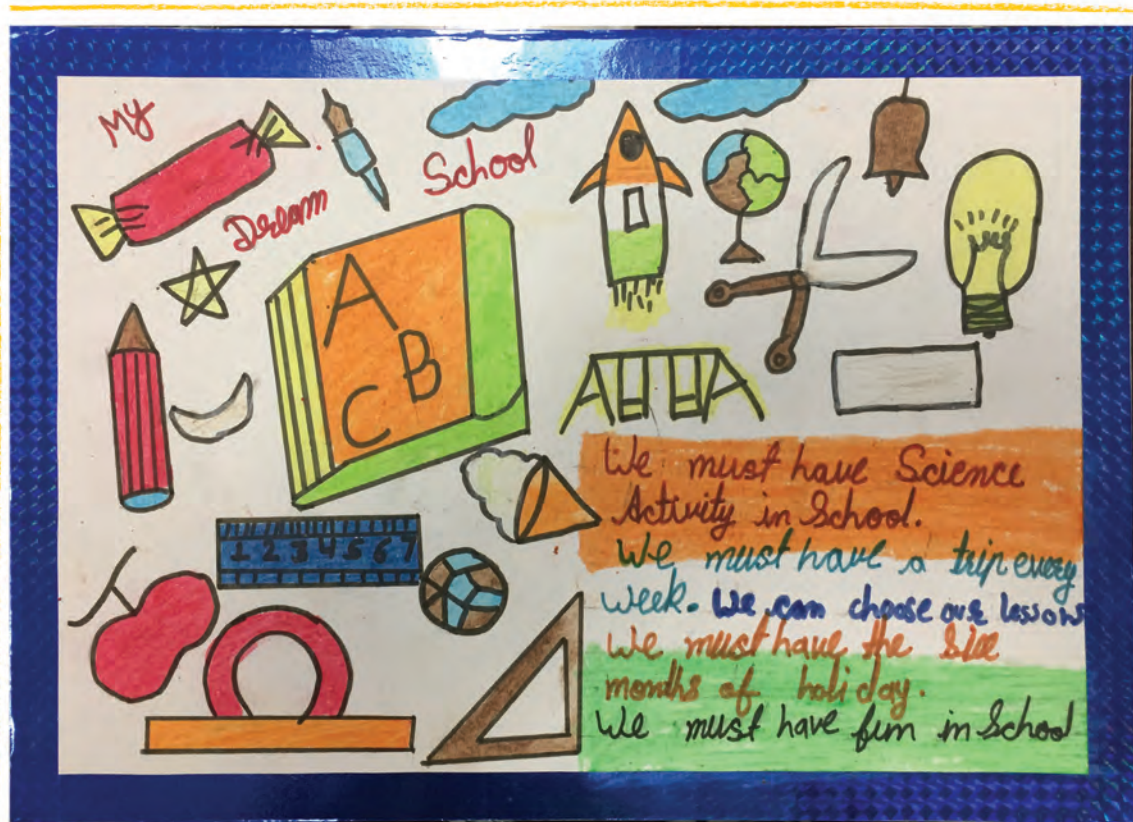 My
Dream
School
A
B
C
1 2 3 4 5 6 7
We must have Science
Activity in School.
We must have a trip every
week. We can choose our lessons
We must have the Six
months of holiday.
We must have fun in School